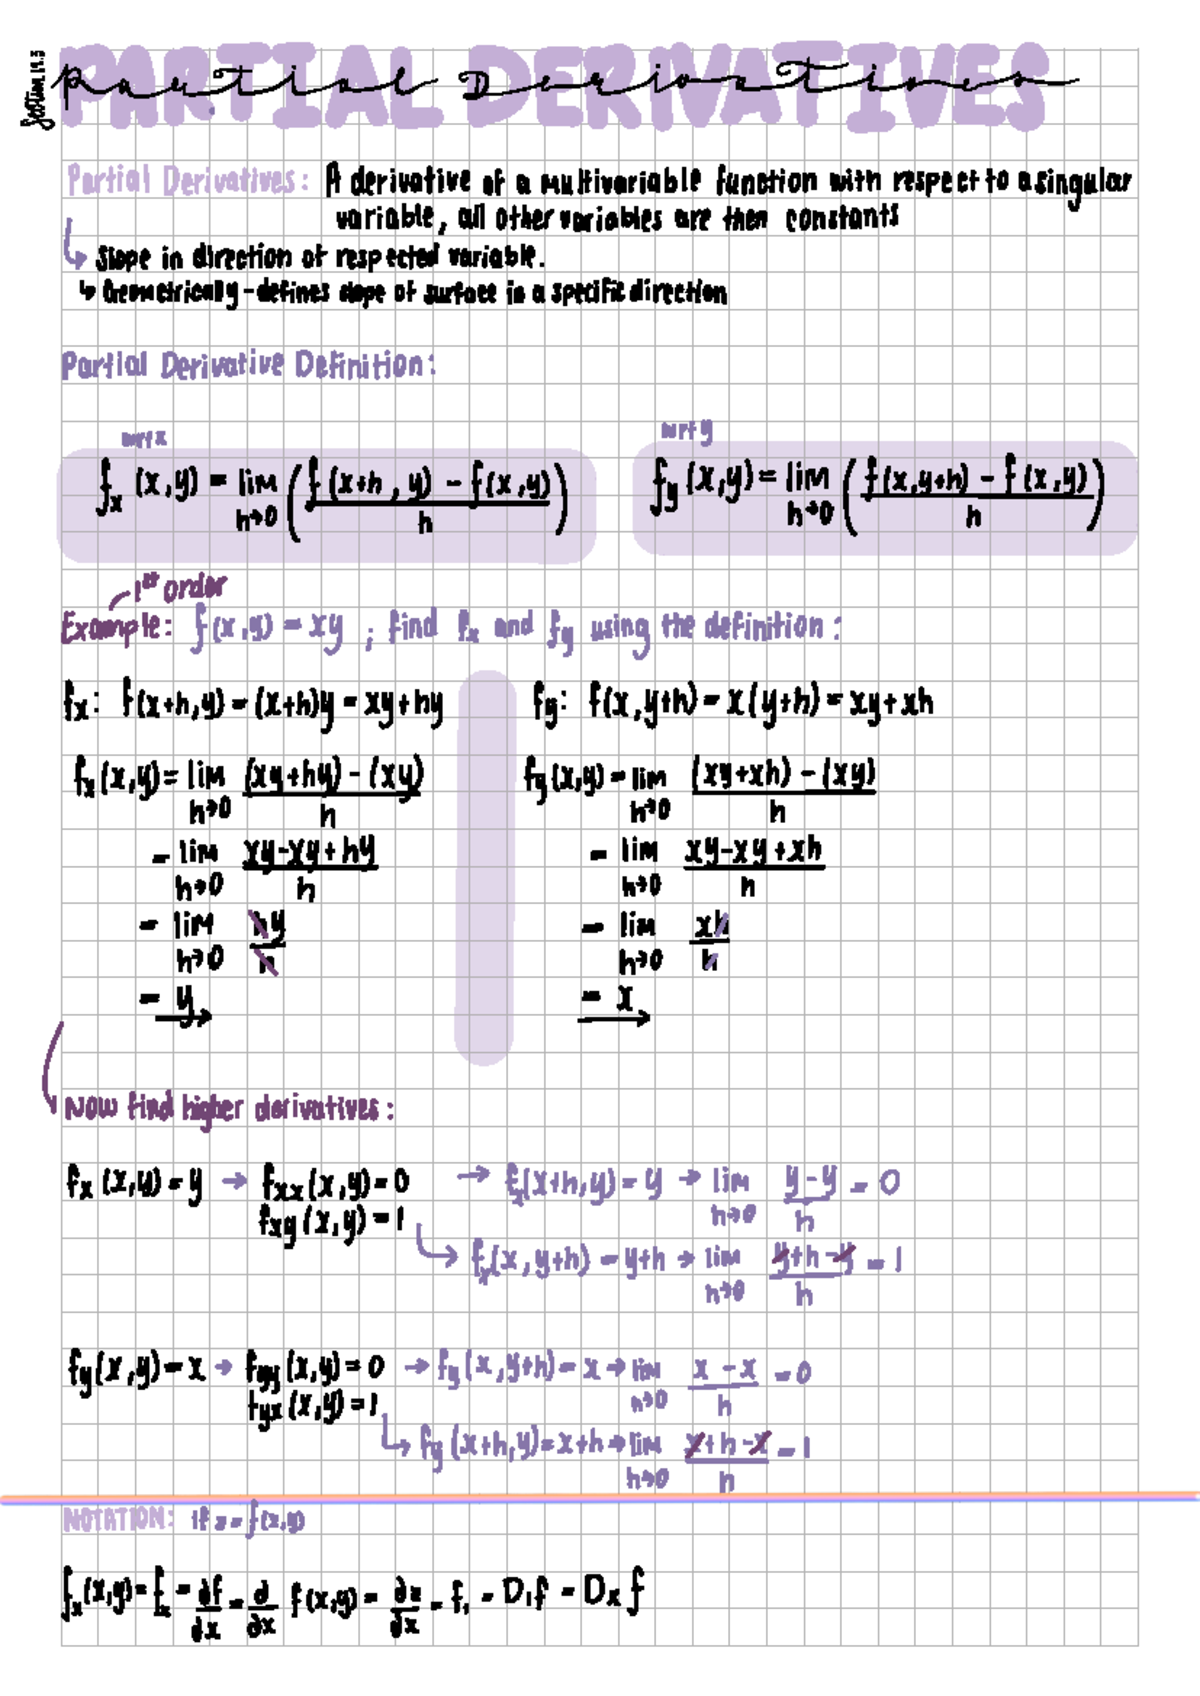 Section 14.3
PARTIAL DERIVATIVES
Partial Derivatives
Partial Derivatives: A derivative of a multivariable function with respect to a singular
variable, all other variables are then constants
↳ Slope in direction of respected variable.
↳ Geometrically - defines slope of surface in a specific direction
Partial Derivative Definition:
wrt x
wrt y
fₓ (x,y) = lim h→0 ( f(x+h, y) - f(x,y) / h )
f_y (x,y) = lim h→0 ( f(x,y+h) - f(x,y) / h )
1st order
Example: f(x,y) = xy ; find fₓ and f_y using the definition:
fₓ: f(x+h,y) = (x+h)y = xy+hy
f_y: f(x,y+h) = x(y+h) = xy+xh
fₓ(x,y) = lim h→0 (xy+hy) - (xy) / h
= lim h→0 xy-xy+hy / h
= lim h→0 hy / h
= y
f_y(x,y) = lim h→0 (xy+xh) - (xy) / h
= lim h→0 xy-xy+xh / h
= lim h→0 xh / h
= x
Now find higher derivatives:
fₓ(x,y) = y → fₓₓ(x,y) = 0 → fₓ(x+h,y) = y → lim h→0 y-y / h = 0
f_xy(x,y) = 1
↳ fₓ(x,y+h) = y+h → lim h→0 y+h-y / h = 1
f_y(x,y) = x → f_yy(x,y) = 0 → f_y(x,y+h) = x → lim h→0 x-x / h = 0
f_yx(x,y) = 1
↳ f_y(x+h,y) = x+h → lim h→0 x+h-x / h = 1
NOTATION: if z = f(x,y)
fₓ(x,y) = fₓ = ∂f/∂x = ∂/∂x f(x,y) = ∂z/∂x = f₁ = D₁f = Dₓf